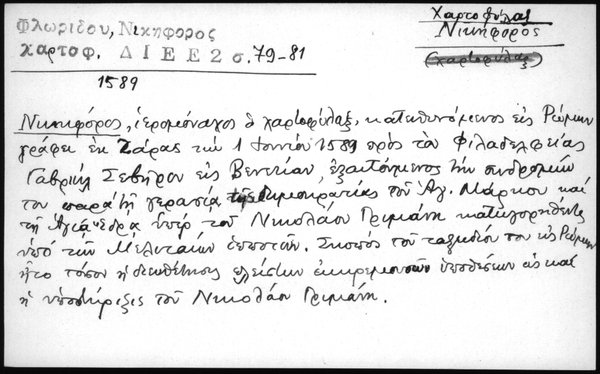 Φλωρίδου, Νικηφόρος
χαρτοφ. ΔΙΕΕ 2 σ. 79-81
Χαρτοφύλαξ
Νικηφόρος
(χαρτοφύλαξ)
1589
Νικηφόρος, ἱερομόναχος ὁ χαρτοφύλαξ, κατευθυνόμενος εἰς Ρώμην
γράφει ἐκ Ζάρας τήν 1 Ιουνίου 1589 πρὸς τὸν Φιλαδελφείας
Γαβριήλ Σεβῆρον εἰς Βενετίαν, ἐξαιτούμενος τήν συνδρομήν
του παρὰ τῇ γερουσίᾳ τῆς Δημοκρατίας τοῦ Ἁγ. Μάρκου καί
τῇ Ἁγίᾳ ἕδρᾳ ὑπέρ τοῦ Νικολάου Πριμάνη κατηγορηθέντος
ὑπό τῶν δεσποτῶν. Σκοπός τοῦ ταξιδίου του εἰς Ρώμην
ἦτο τόσον ἡ διευθέτησις πλείστων ἐκκρεμουσῶν ὑποθέσεων ὡς καί
ἡ ὑποστήριξις τοῦ Νικολάου Πριμάνη.